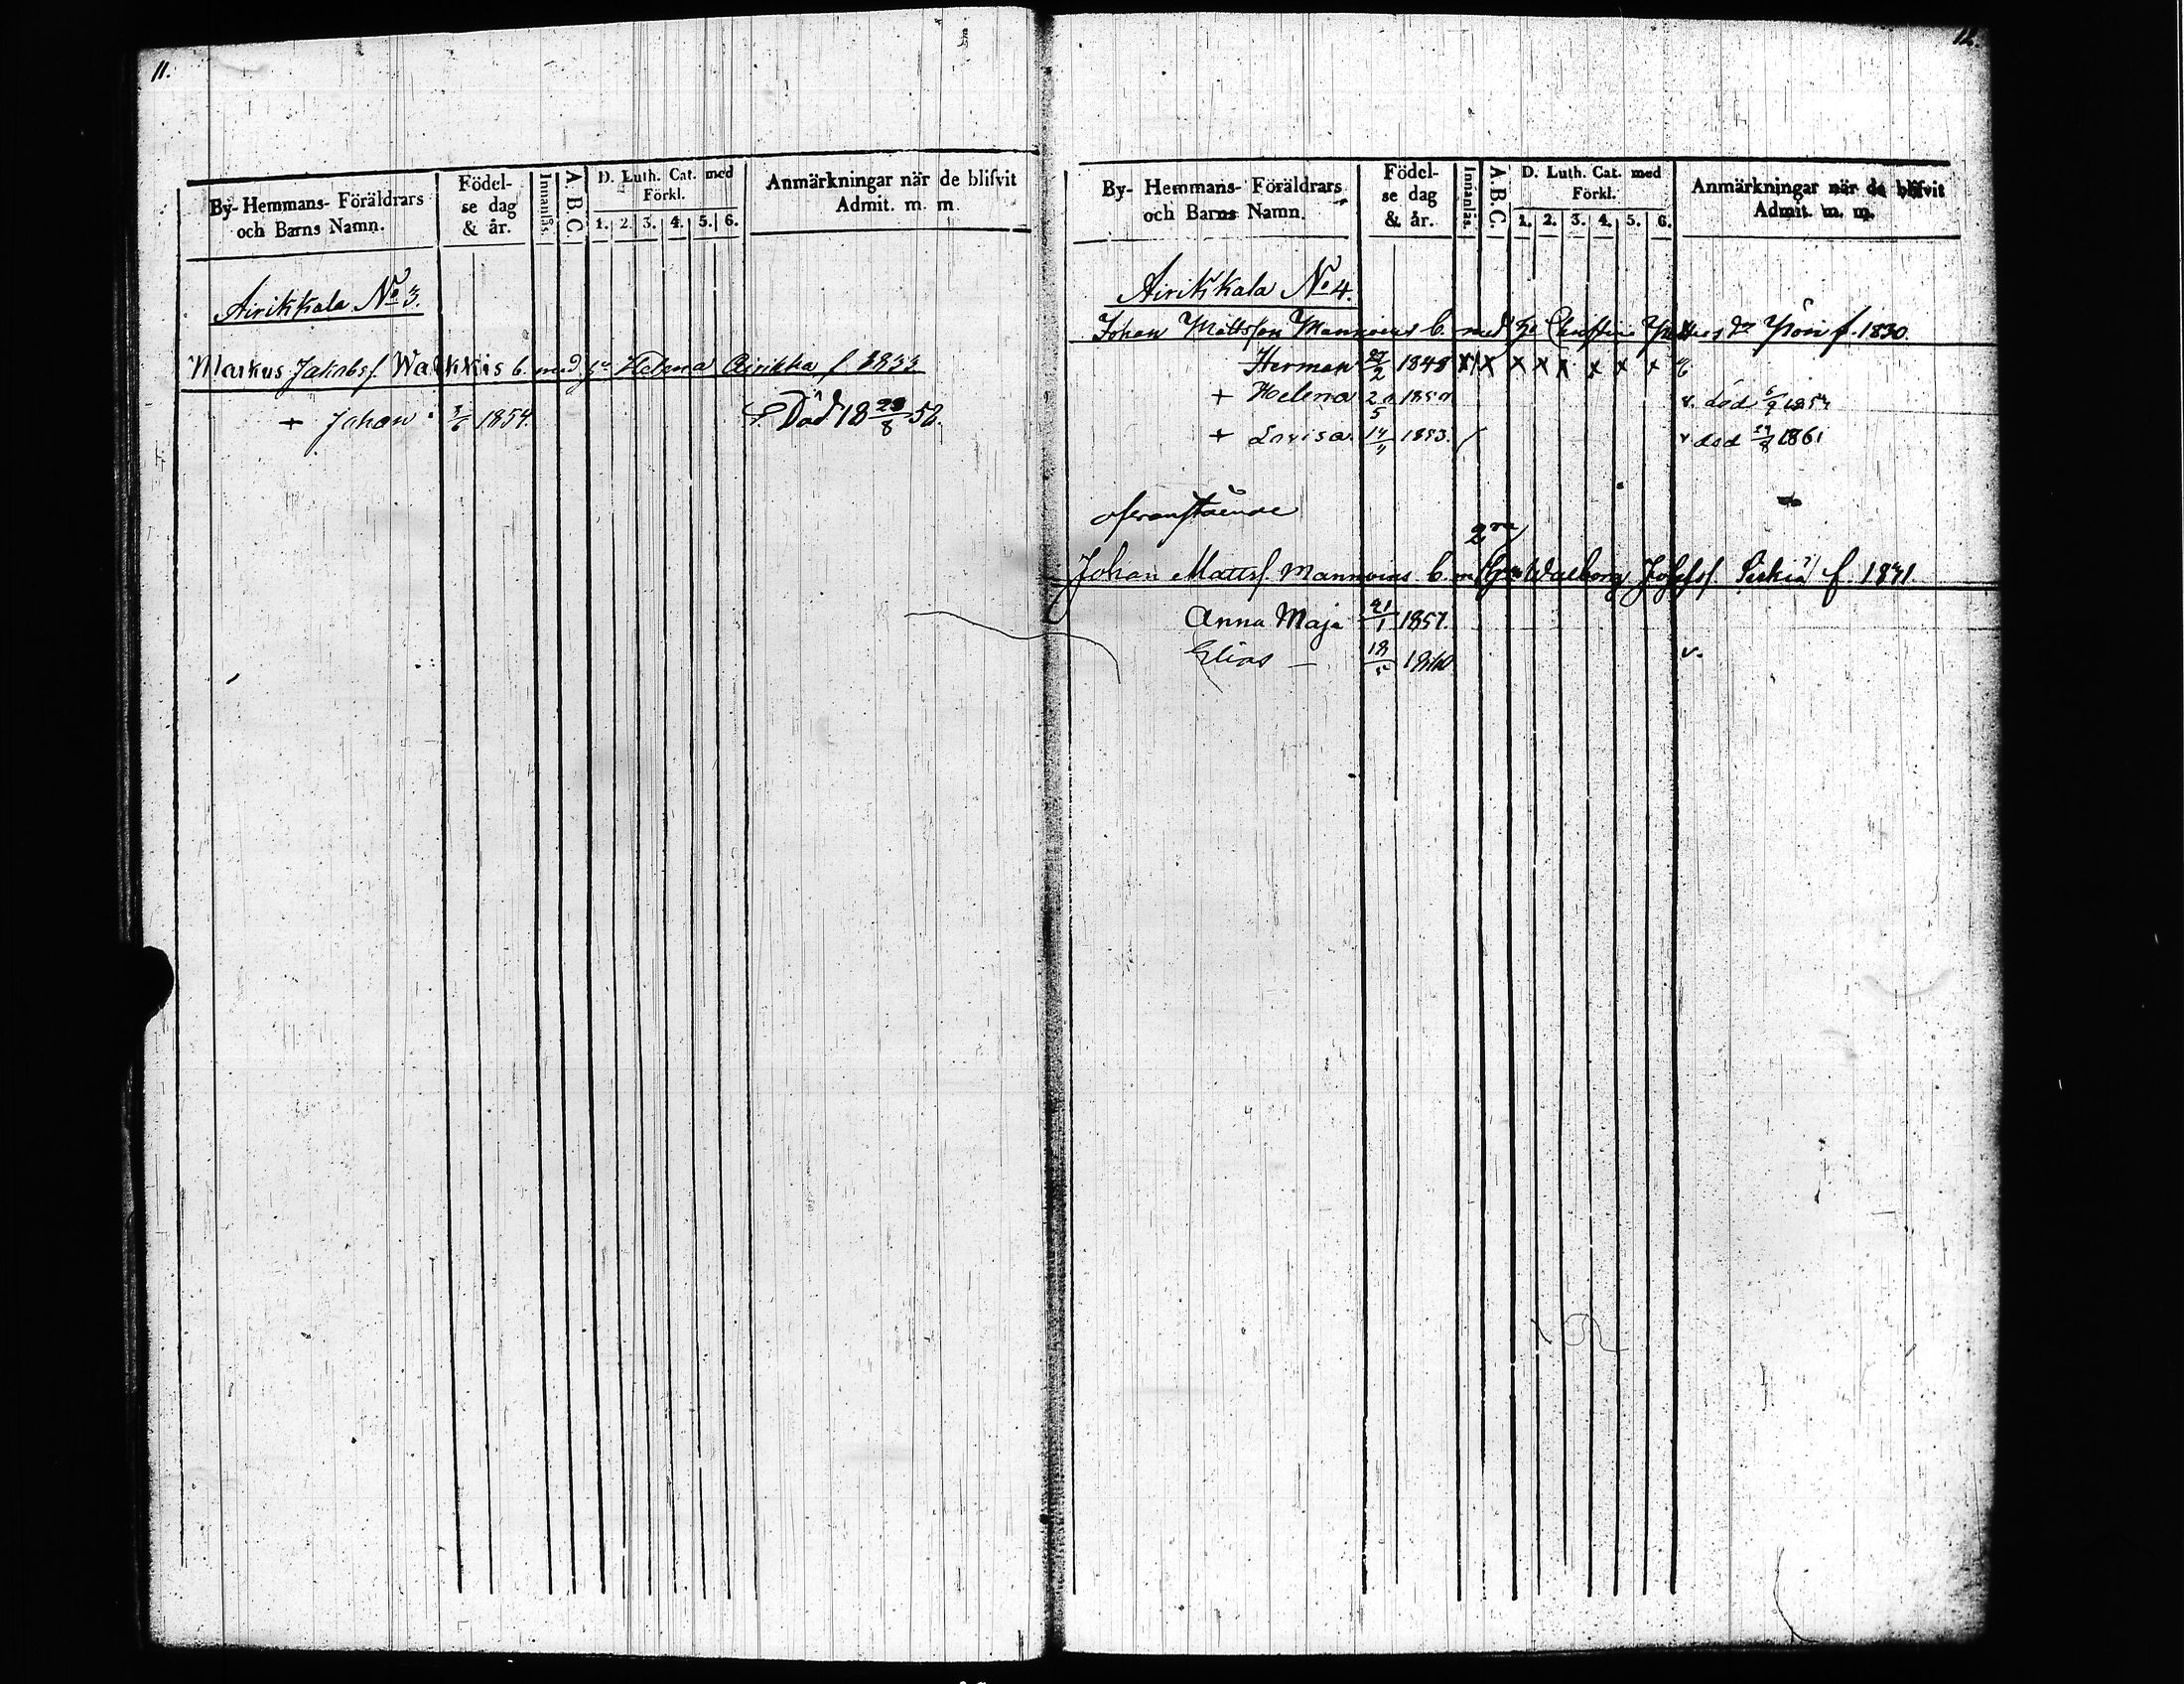 11.
By- Hemmans- Föräldrars och Barns Namn.
Födel-se dag & år.
Innanläs.
A.B.C.
D. Luth. Cat. med Förkl.
1. 2. 3. 4. 5. 6.
Anmärkningar när de blifvit Admit. m. m
Airikkala No 3.
Markus Jakobsf. Walkkis b. med hu Helena Airikka f 1833
+ Johan 3/6 1854. Död 18 29/8 58.
12.
By- Hemmans- Föräldrars och Barns Namn.
Födel-se dag & år.
Innanläs.
A.B.C.
D. Luth. Cat. med Förkl.
1. 2. 3. 4. 5. 6.
Anmärkningar när de blifvit Admit. m. m.
Airikkala No 4.
Johan Mattsson Mannoins b. med hu f. 1830.
Herman 27/2 1848 x x x x x x x x
+ Helena 1850 v. död
+ Lovisa. 14/11 1853. v död 1861
ofvanstående
2dra
Johan Mattsf. Mannoins b. m Walborg Josefsf f.
Anna Maja 21/1 1857.
Elias – 18/5 1860 v.